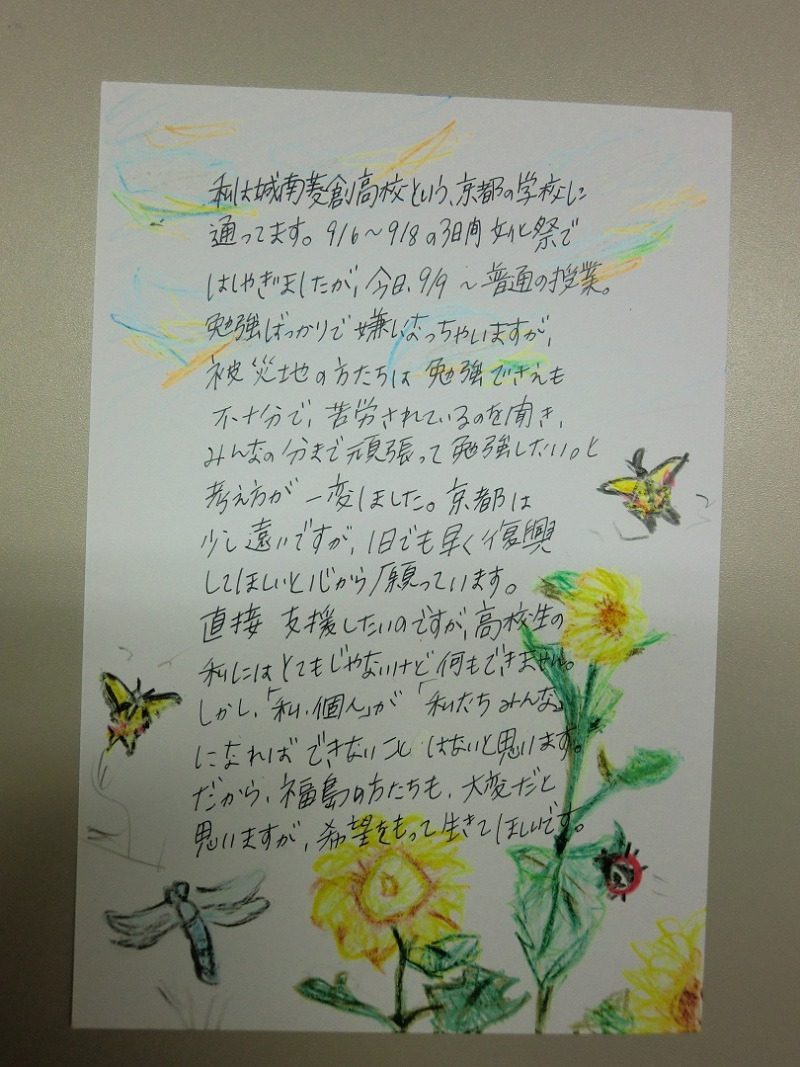 私は城南菱創高校という、京都の学校に
通ってます。9/6～9/8の3日間文化祭で
はしゃぎましたが、今日、9/9～普通の授業。
勉強ばっかりで嫌になっちゃいますが、
被災地の方たちは勉強でさえも
不十分で、苦労されているのを聞き、
みんなの分まで頑張って勉強したい。と
考え方が一変しました。京都は
少し遠いですが、1日でも早く復興
してほしいと心から願っています。
直接支援したいのですが、高校生の
私にはとてもじゃないけど何もできません。
しかし、「私・個人」が「私たちみんな」
になればできないことはないと思います。
だから、福島の方たちも、大変だと
思いますが、希望をもって生きてほしいです。